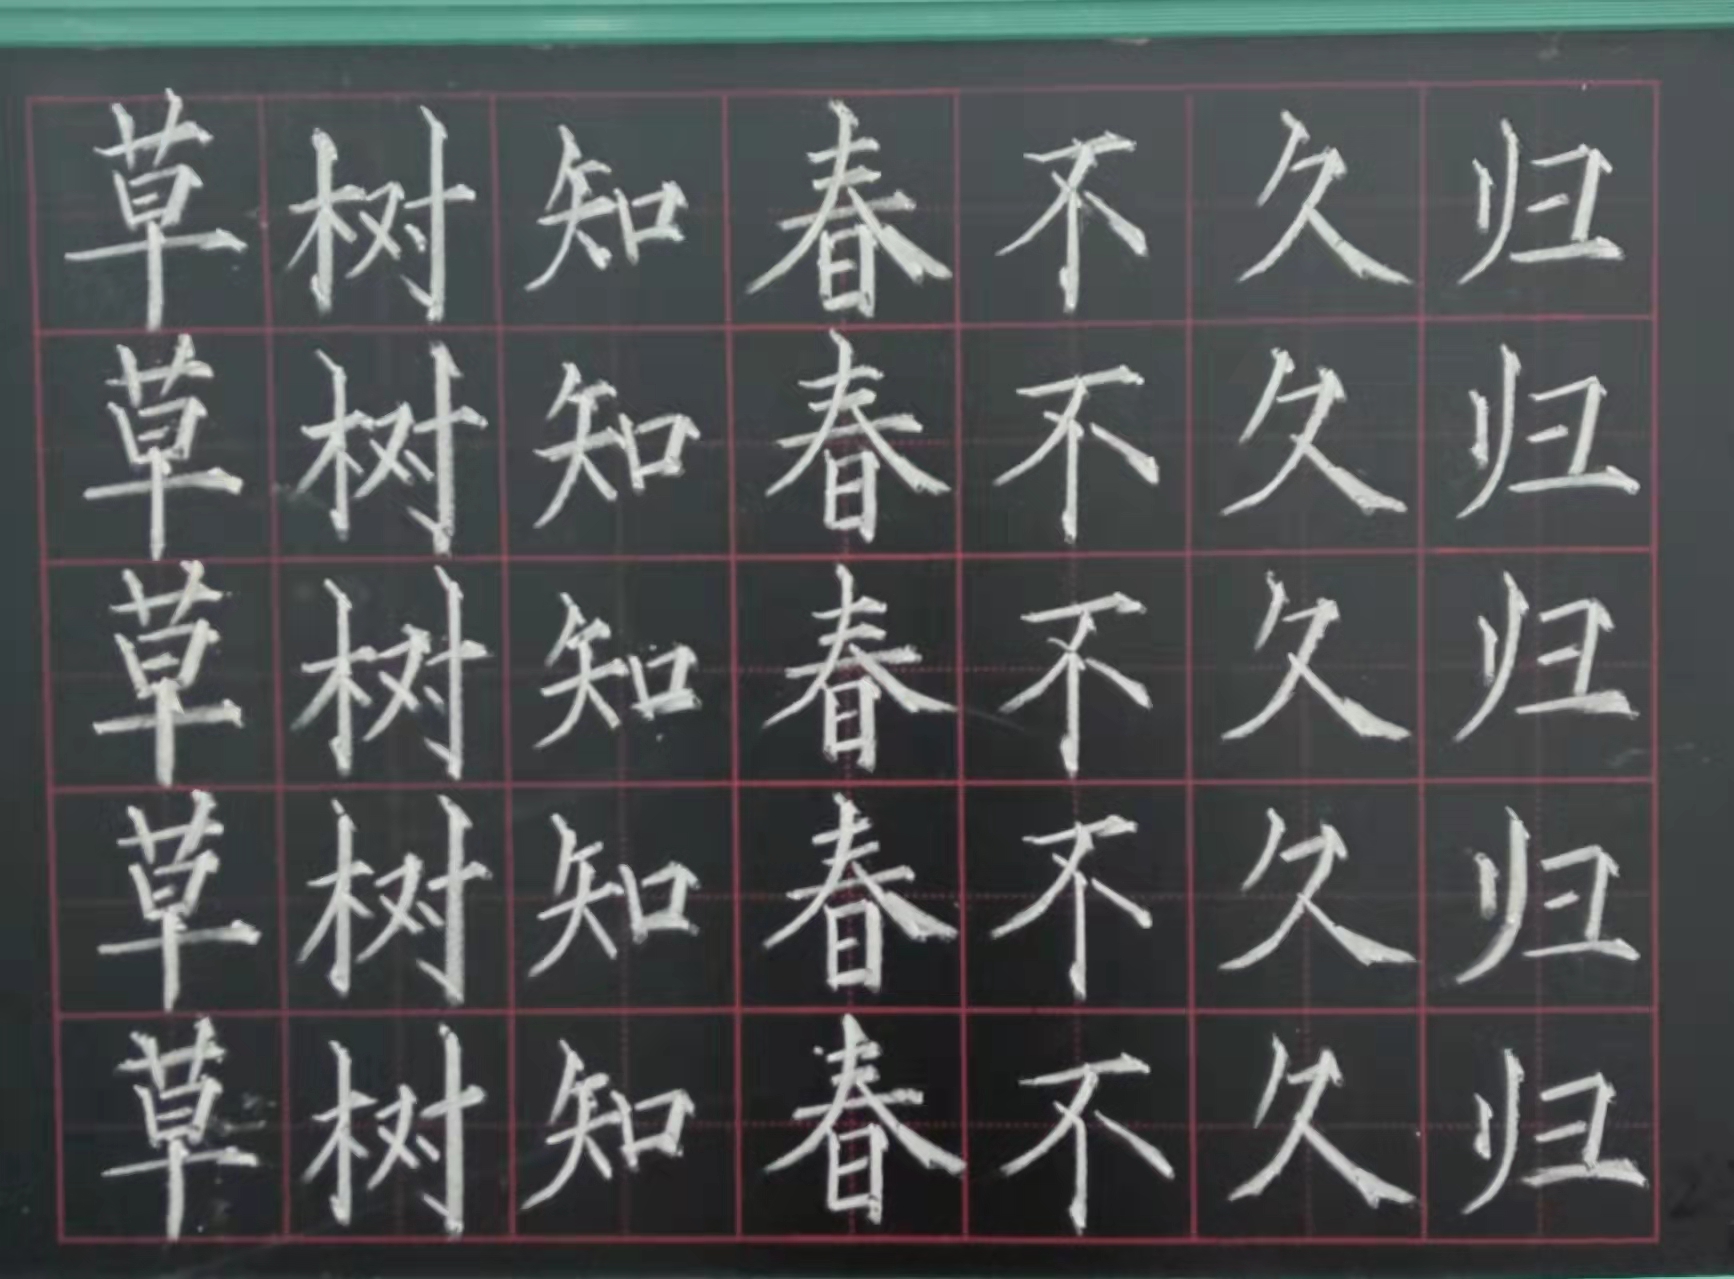 草树知春不久归
草树知春不久归
草树知春不久归
草树知春不久归
草树知春不久归